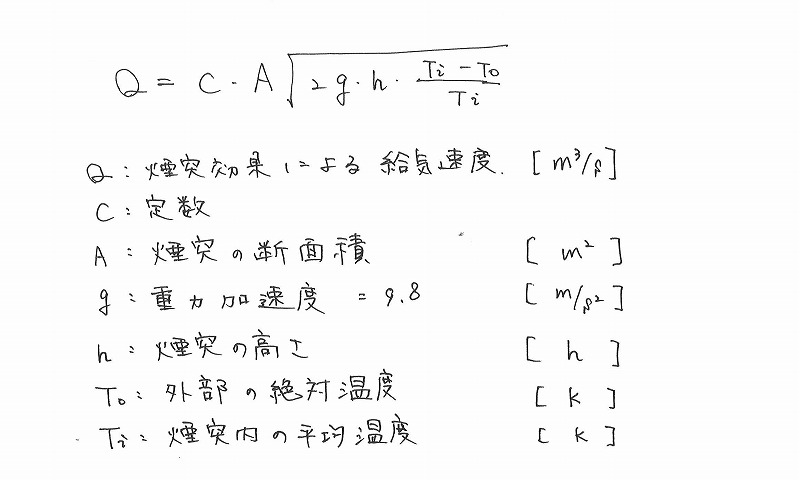 Q = C・A√(2g・h・(Ti − To)/Ti)
Q：煙突効果による給気速度． [m³/s]
C：定数
A：煙突の断面積 [m²]
g：重力加速度 = 9.8 [m/s²]
h：煙突の高さ [h]
To：外部の絶対温度 [k]
Ti：煙突内の平均温度 [k]